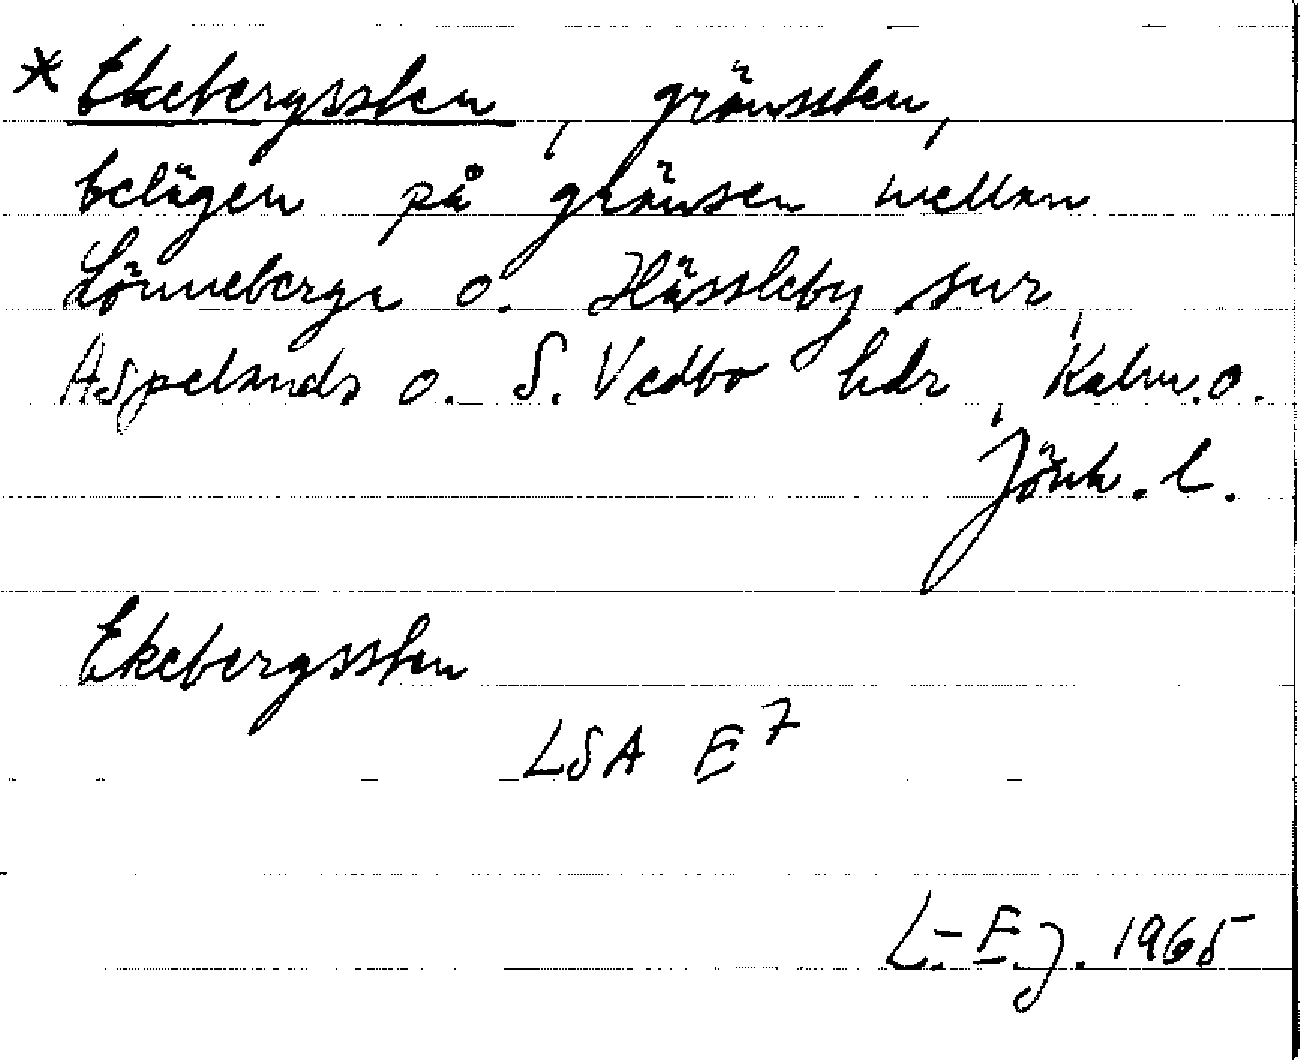 * Ekebergssten, gränssten,
belägen på gränsen mellan
Lönneberga o. Hässleby snr,
Aspelands o. S. Vedbo hdr, Kalm. o.
Jönk. l.
Ekebergssten
LSA E7
L.-E. J. 1965